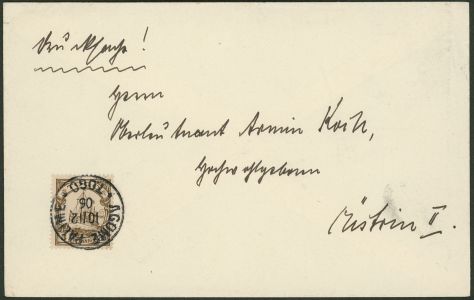 Drucksache!
Herrn
Oberleutnant Armin Koch,
Hochwohlgeboren
Küstrin II.
AGOME PALIME
TOGO
10/12
06